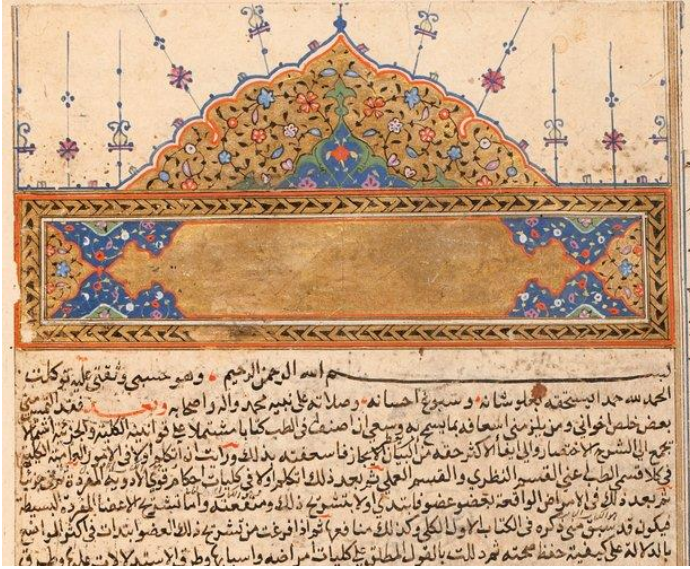 بسم الله الرحمن الرحيم وهو حسبي وثقتي عليه توكلت
الحمد لله حمدا يستحقه بعلو شانه وسبوغ احسانه وصلاته على نبيه محمد واله واصحابه وبعد فقد التمس مني
بعض خلص اخواني ومن يلزمني اسعافه بما يسمح به وسعي ان اصنف في الطب كتابا مشتملا على قوانينه الكلية والجزئية اشتمالا
يجمع الى الشرح الاختصار والى ايفاء الاكثر حقه من البيان الايجاز فاسعفته بذلك ورايت ان اتكلم اولا في الامور العامة الكلية
في كلا قسمي الطب اعني القسم النظري والقسم العملي ثم بعد ذلك اتكلم اولا في كليات احكام قوى الادوية المفردة ثم في جزئياتها
ثم بعد ذلك في الامراض الواقعة بعضو عضو فابتدي اولا بتشريح ذلك ومنفعته واما تشريح الاعضا المفردة البسيطة
فيكون قد سبق مني ذكره في الكتاب الاول الكلي وكذلك منافعها ثم اذا فرغت من تشريح ذلك العضو ابتدات في اكثر المواضع
بالدلالة على كيفية حفظ صحته ثم دللت بالقول المطلق على كليات امراضه واسبابها وطرق الاستدلالات عليها وطرق